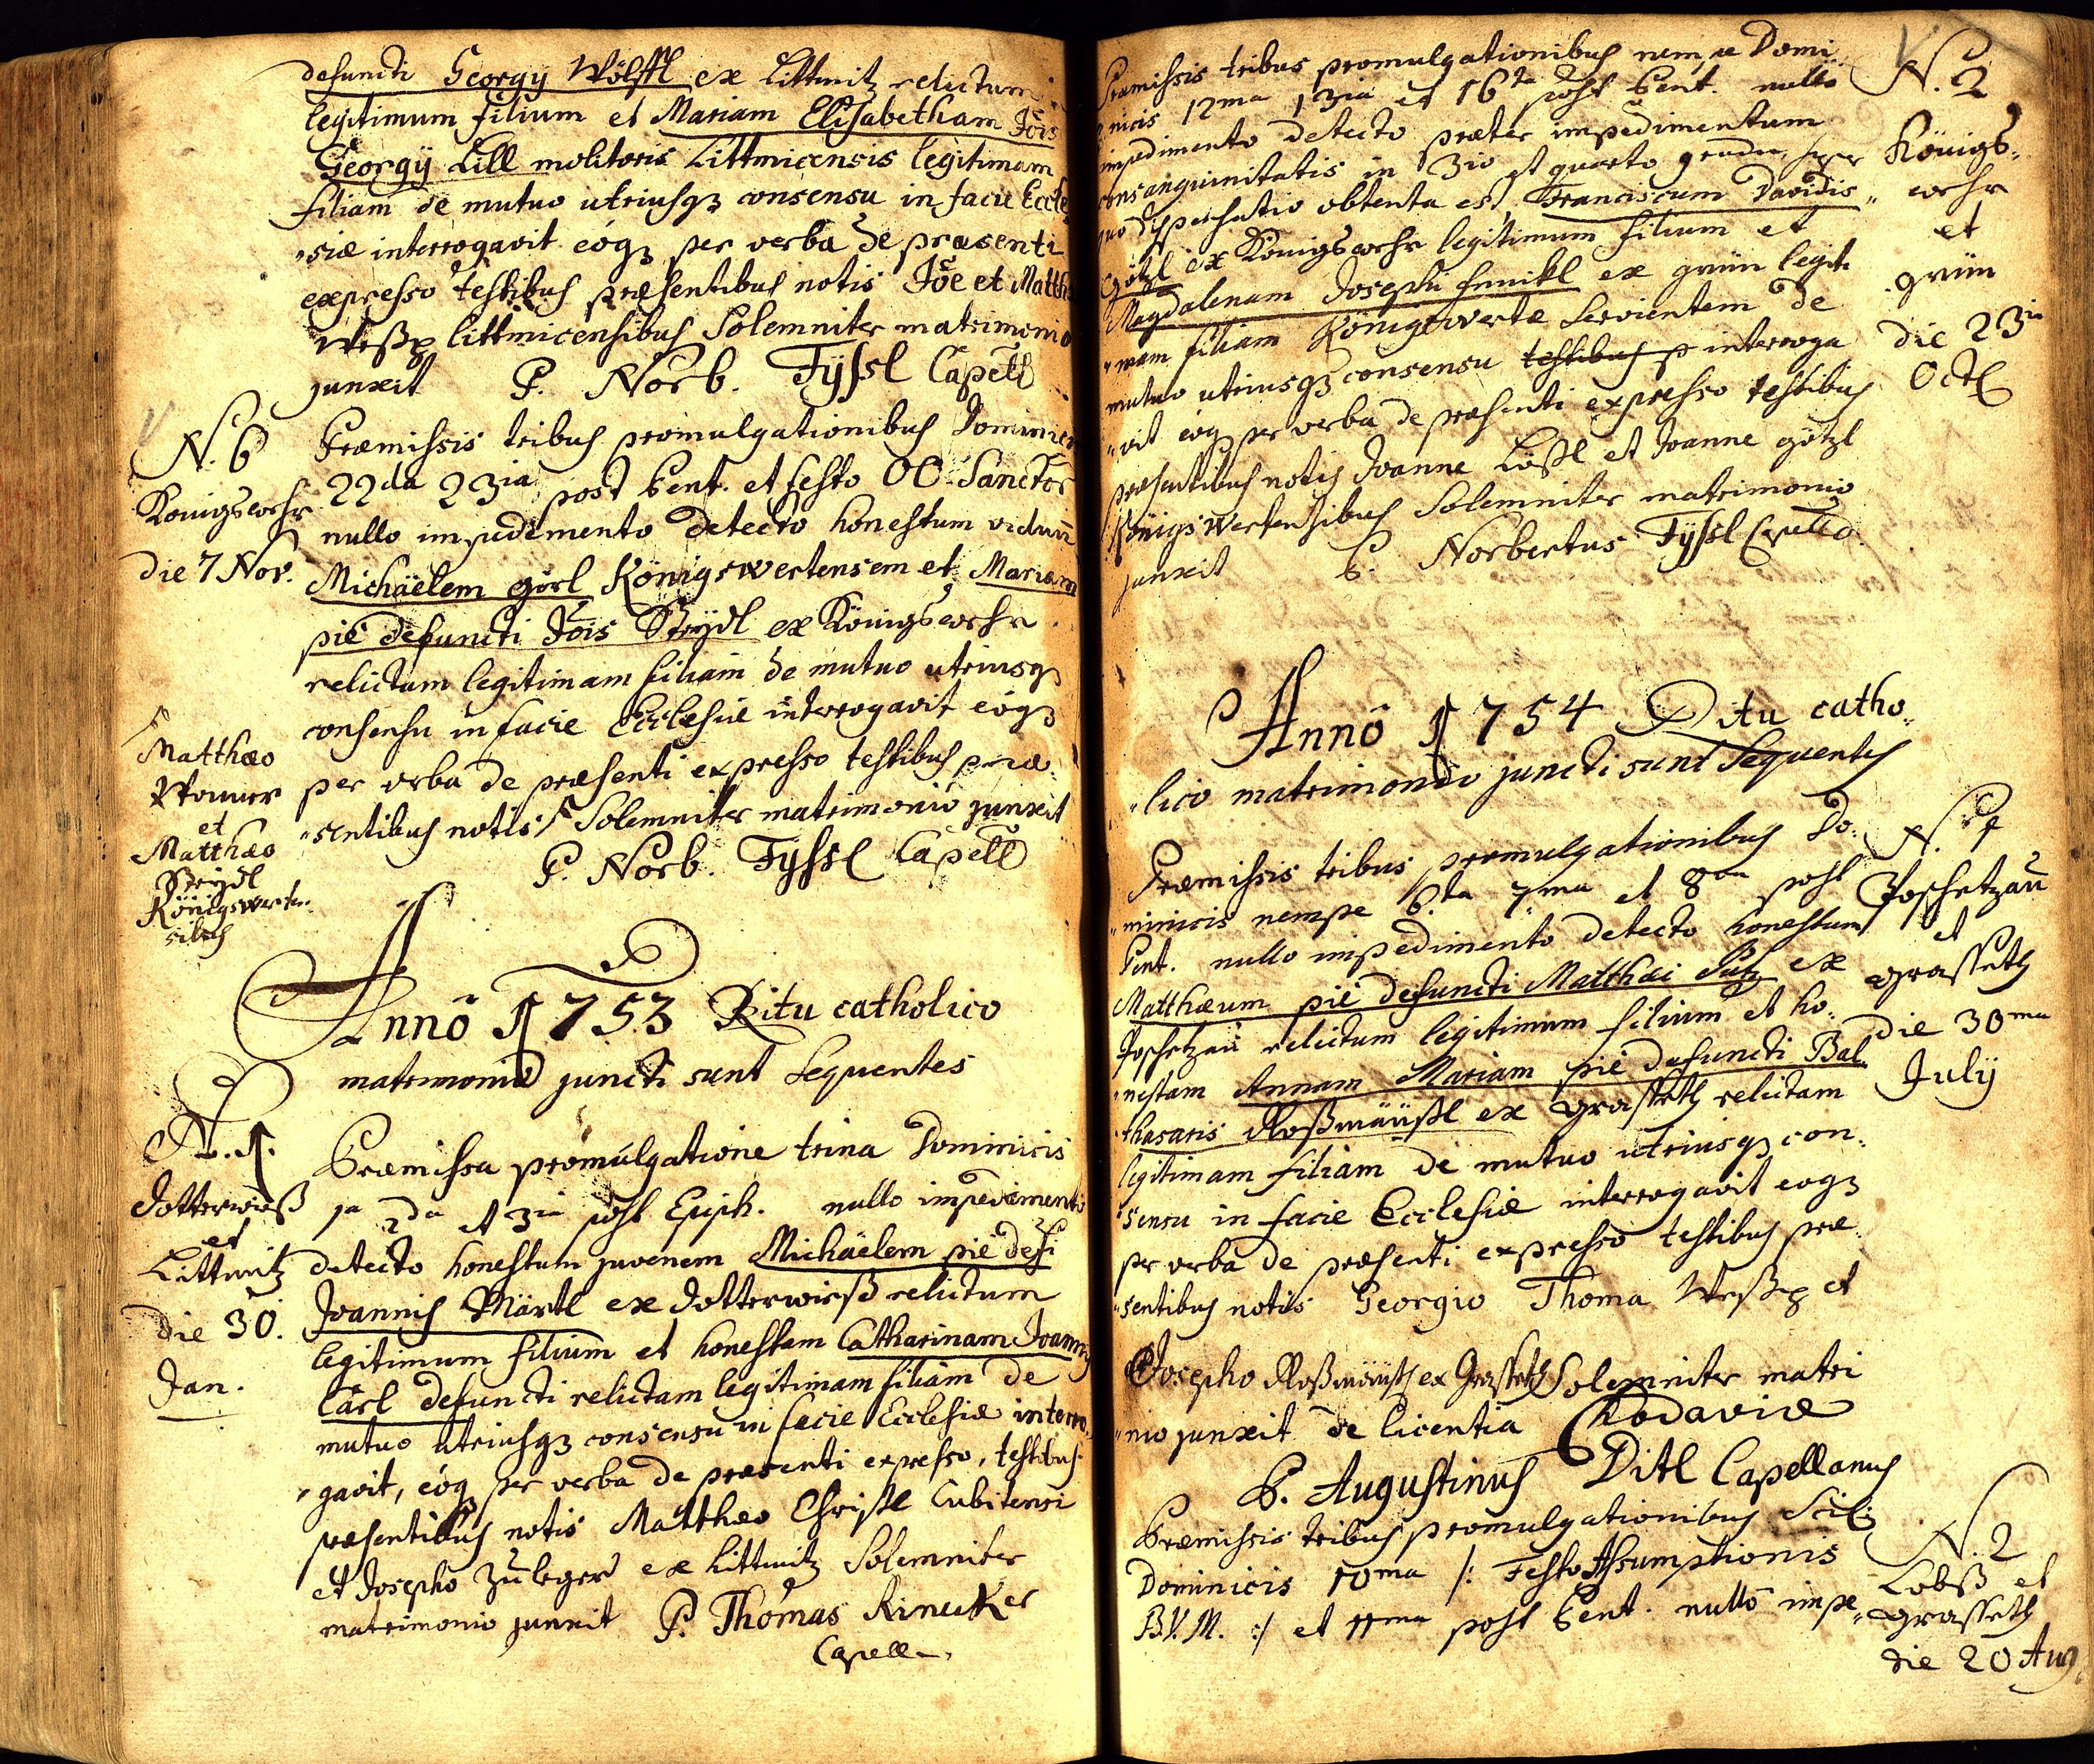 defuncti Georgÿ Wölffl ex Littmitz relictum
legitimum filium et Mariam Elisabetham Jois
Georgÿ Lill molitoris Littmicensis legitimam
filiam de mutuo utriusqз consensu in facie Eccle
siæ interrogavit eóqз per verba de præsenti
expresso testibus præsentibus notis Jõe et Matth
littmicensibus Solemniter matrimonio
junxit P. Norb. Fÿssl Capell
N. 6 Præmissis tribus promulgationibus Dominicis
Konigswehr 22da 23ia post Pent. et festo OO Sanctor
nullo impedimento detecto honestum viduũ
die 7 Nov. Michäelem görl Königswertensem et Mariam
pié defuncti Jõis Steÿdl ex Königswehr
relictam legitimam filiam de mutuo utriusqз
consensu in facie Ecclesiæ interrogavit eóqз
Matthæo
per verba de præsenti expresso testibus præ
et
Matthæo
sentibus notis Solemniter matrimonio junxit
P. Norb. Fÿssl Capell
Steÿdl
Königswerten
sibus
Annô 1753 Ritu catholico
matrimonio juncti sunt Sequentes
N. 1. Præmissa promulgatione trina Dominicis
Dotterwieß 1a 2da et 3ia post Epiph. nullo impedimento
et
Littmitz detecto honestum juvenem Michäelem pié defũ
die 30. Joannis Märtl ex Dotterwieß relictum
legitimum filium et honestam Catharinam Joannis
Jan. Cärl defuncti relictam legitimam filiam de
mutuo utriusqз consensu in facie Ecclesiæ interro
gavit, eóqз per verba de præsenti expresso, testibus
præsentibus notis Matthæo Christl Cubitensi
et Josepho Zuleger ex Littmitz Solemniter
matrimonio junxit P. Thomas Rinecker
Capell
Præmissis tribus promulgationibus nempe Domi N. 2
nicis 12ma 13ia et 16ta post Pent. nullo
impedimento detecto præter impedimentum Königs
consanguinitatis in 3io et quarto gradu, super wehr
quo dispensatio obtenta est, Franciscum Davidis et
Götzl ex Königswehr legitimum filium et grün
Magdalenam Josephi Ennikl ex grün legiti
mam filiam Königswertæ Servientem de die 23ia
mutuo utriusqз consensu testibus p interroga Octb
vit eóqз per verba de præsenti expresso testibus
præsentibus notis Joanne Lößl et Joanne götzl
Königswertensibus Solemniter matrimonio
junxit P. Norbertus Fÿssl Capello.
Annô 1754 Ritu catho
lico matrimonio juncti sunt Sequentes
Præmissis tribus promulgationibus Do N. 1
minicis nempe 6ta 7ma et 8va post Poschetzau
Pent. nullo impedimento detecto honestum et
Matthæum pié defuncti Matthæi Putz ex grasseth
Poschetzau relictum legitimum filium et ho die 30ma
nestam Annam Mariam pié defuncti Bal Julÿ
thasaris Roßmäußl ex grasseth relictam
legitimam filiam de mutuo utriusqз con
sensu in facie Ecclesiæ interrogavit eoqз
per verba de præsenti expresso testibus præ
sentibus notis Georgio Thoma et
Josepho Roßmäusl ex Grasseth Solemniter matri
nio junxit de licentia Chodaviæ
P. Augustinus Ditl Capellanus
Præmissis tribus promulgationibus Scil: N. 2
Dominicis 10ma /: Festo Assumptionis Lobß et
B.V.M. :/ et 11ma post Pent. nullo impe grasseth
die 20 Aug